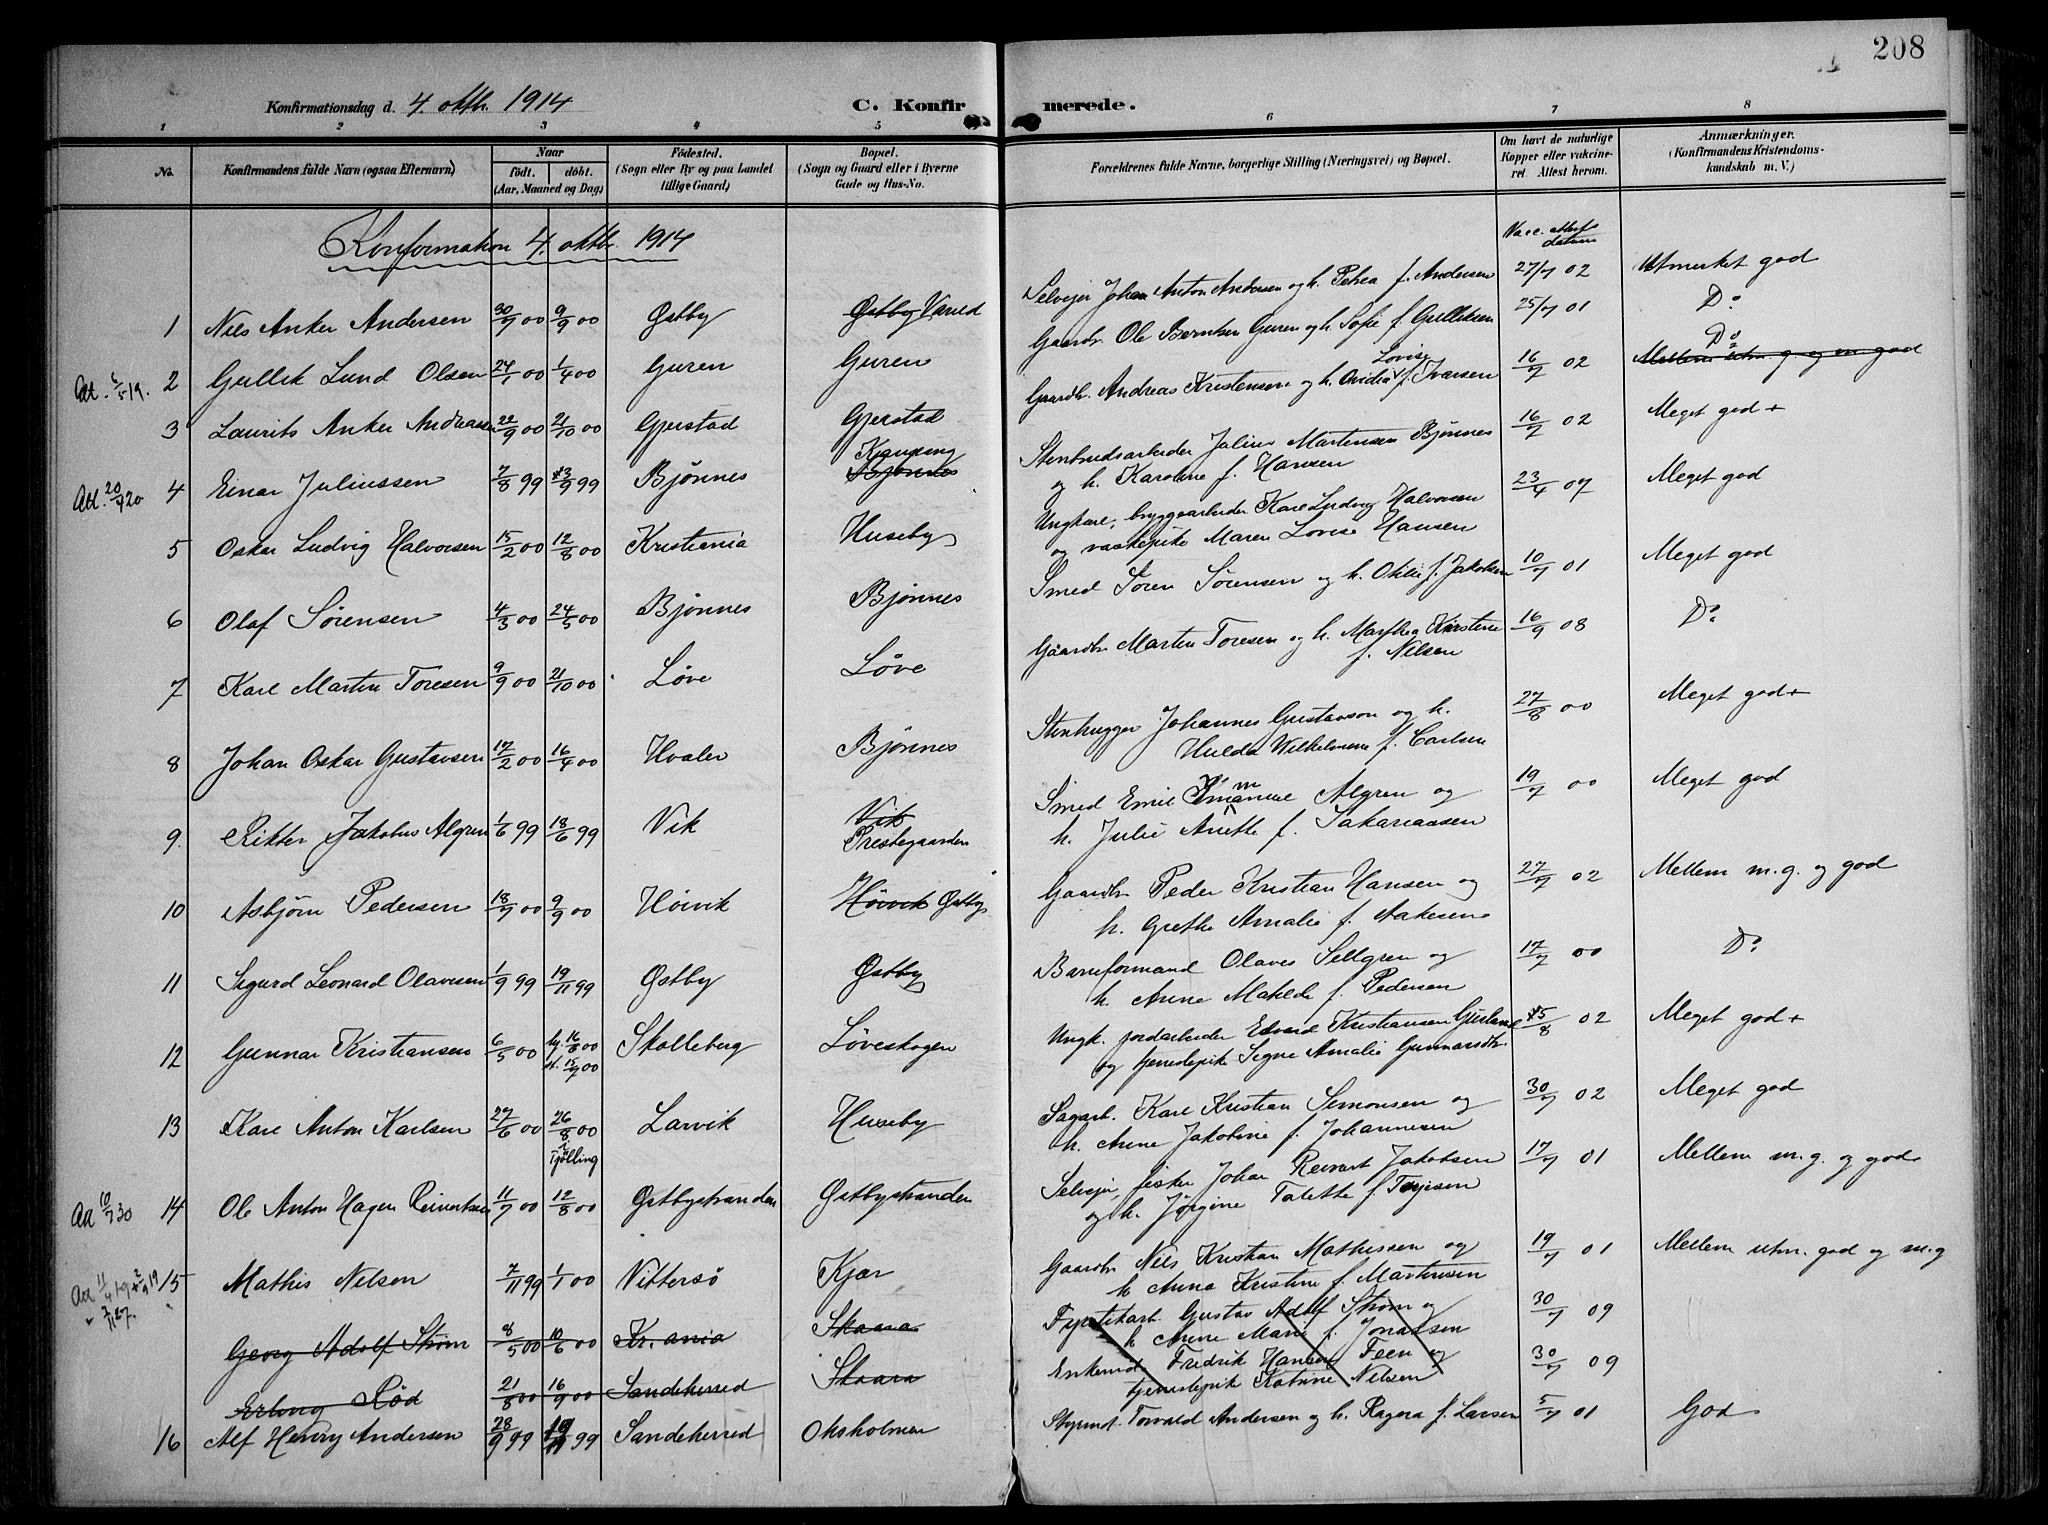 208
Konfirmationsdag d. 4. oktb. 1914 C. Konfirmerede.
1 2 3 4 5 6 7 8
No. Konfirmandens fulde Navn (ogsaa Efternavn) Naar født. døbt. (Aar, Maaned og Dag) Fødested. (Sogn eller By og paa Landet tillige Gaard) Bopæl. (Sogn og Gaard eller i Byerne Gade og Hus-No. Forældrenes fulde Navne, borgerlige Stilling (Næringsvei) og Bopæl. Om havt de naturlige Kopper eller vakcineret. Attest herom. Anmærkninger. (Konfirmandens Kristendomskundskab m. V.)
Konfirmation 4. oktbr. 1914
Vacc. attest datum
1 Nils Anker Andersen 30/7 00 9/9 00 Østby Østby Varild Selvejer Johan Anton Andersen og h. Petrea f. Andersen 27/7 02 Utmerket god
Att. 6/5 19. 2 Gullik Lund Olsen 24/1 00 1/4 00 Guren Guren Gaardbr. Ole Berntsen Guren og h. Sofie f. Gulliksen 25/7 01 Do
3 Laurits Anker Andreassen 22/9 00 21/10 00 Gjerstad Gjerstad Gaardbr. Andreas Kristensen og h. Ovidia Lovise f. Ivarsen 16/7 02 Do Mellem utm. g. og m god
Att. 20/4 20 4 Einar Juliussen 7/8 99 13/9 99 Bjønnes Kjaupeng Bjønnes Stenbrudsarbeider Julius Martensen Bjønnes
og h. Karoline f. Hansen 16/7 02 Meget god +
5 Oskar Ludvig Halvorsen 15/2 00 12/8 00 Kristiania Huseby Ungkarl, bryggearbeider Karl Ludvig Halvorsen
og vaskepike Maren Lovise Hansen 23/4 07 Meget god
6 Olaf Sørensen 4/3 00 24/5 00 Bjønnes Bjønnes Smed Søren Sørensen og h. Otilie f. Jakobsen 10/7 01 Meget god
7 Karl Martin Toresen 9/9 00 21/10 00 Løve Løve Gaardbr Martin Toresen og h. Marthea Kirstine
f. Nilsen 16/9 08 Do
8 Johan Oskar Gustavsen 17/2 00 16/4 00 Hvaler Bjønnes Stenhugger Johannes Gustavson og h.
Hulda Wilhelmine f. Carlsen 27/8 00 Meget god +
9. Rikter Jakobus Algren 1/6 99 18/6 99 Vik Vik Prestegaarden Smed Emil Emanuel Algren og
h. Julie Anette f. Sakariassen 19/7 00 Meget god
10 Asbjørn Pedersen 18/7 00 9/9 00 Høivik Høivik Østby Gaardbr Peder Kristian Hansen og
h. Grethe Amalie f. Aakesen 27/7 02 Mellem m.g. og god
11 Sigurd Leonard Olavesen 1/9 99 19/11 99 Østby Østby Baneformand Olaves Sellgren og
h. Anne Matilde f. Pedersen 17/7 00 Do
12 Gunnar Kristiansen 6/5 00 hj. 16/8 00 st. 15/7 00 Skalleberg Løveskogen Ungk. jordarbeider Edvard Kristiansen Gusland
og tjenestepike Signe Amalie Gunnarsdtr. 15/8 02 Meget god +
13 Karl Anton Karlsen 27/6 00 26/8 00 i Tjølling Larvik Huseby Sagarb. Karl Kristian Simonsen og
h. Anne Jakobine f. Johannesen 30/7 02 Meget god
Att 10/7 30 14 Ole Anton Hagen Reinertsen 11/7 00 12/8 00 Østbystranden Østbystranden Selvejer, fisker Johan Reinert Jakobsen
og h. Jørgine Talette f. Terjesen 17/7 01 Mellem m.g. og god
Att 11/4 19 + 2/9 19 15 Mathis Nilsen 7/11 99 1/1 00 Vittersø Kjær Gaardbr Nils Kristian Mathissen og
h Anna Kristine f. Martinsen 19/7 01 Mellem utm. god og m.g
Georg Adolf Strøm 8/5 00 10/6 00 Kr.ania Skaara Fyrstikarb. Gustav Adolf Strøm og
h Anne Marie f. Jonassen 30/7 09
Erling Rød 21/8 00 16/9 00 Sandeherred Skaara Enkemd. Fredrik Hansen Feen og
tjenestepik Katrine Nilsen 30/7 09
16 Alf Henry Andersen 28/9 99 19/11 99 Sandeherred Oksholmen Styrmd. Torvald Andersen og h. Ragna f. Larsen 5/7 01 God